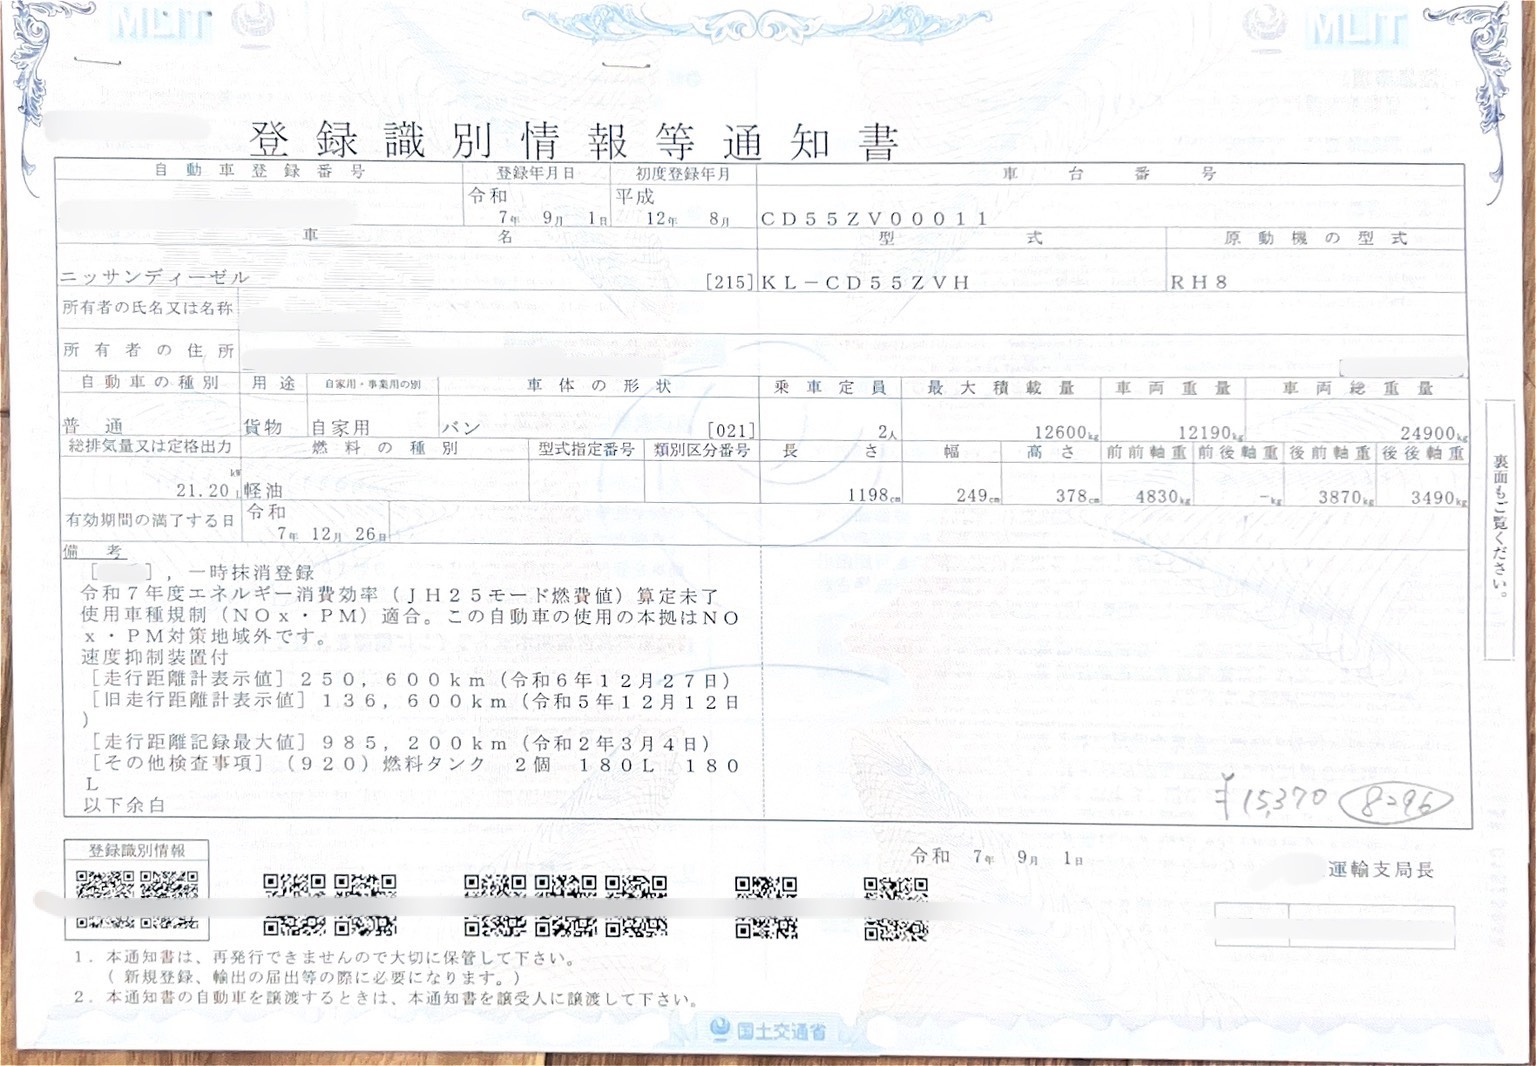 MLIT
MLIT
登録識別情報等通知書
自動車登録番号 登録年月日 初度登録年月 車台番号
令和 平成
7年 9月 1日 12年 8月 CD55ZV00011
車名 型式 原動機の型式
ニッサンディーゼル [215] KL-CD55ZVH RH8
所有者の氏名又は名称
所有者の住所
自動車の種別 用途 自家用・事業用の別 車体の形状 乗車定員 最大積載量 車両重量 車両総重量
普通 貨物 自家用 バン [021] 2人 12600kg 12190kg 24900kg
総排気量又は定格出力 燃料の種別 型式指定番号 類別区分番号 長さ 幅 高さ 前前軸重 前後軸重 後前軸重 後後軸重
kW
21.20 L 軽油 1198cm 249cm 378cm 4830kg -kg 3870kg 3490kg
有効期間の満了する日 令和
7年 12月 26日
備考
[ ],一時抹消登録
令和7年度エネルギー消費効率(JH25モード燃費値)算定未了
使用車種規制(NOx・PM)適合。この自動車の使用の本拠はNO
x・PM対策地域外です。
速度抑制装置付
[走行距離計表示値]250,600km(令和6年12月27日)
[旧走行距離計表示値]136,600km(令和5年12月12日
)
[走行距離記録最大値]985,200km(令和2年3月4日)
[その他検査事項](920)燃料タンク 2個 180L 180
L
以下余白
¥15,370 8296
裏面もご覧ください。
登録識別情報
令和 7年 9月 1日
運輸支局長
1. 本通知書は、再発行できませんので大切に保管して下さい。
(新規登録、輸出の届出等の際に必要になります。)
2. 本通知書の自動車を譲渡するときは、本通知書を譲受人に譲渡して下さい。
国土交通省